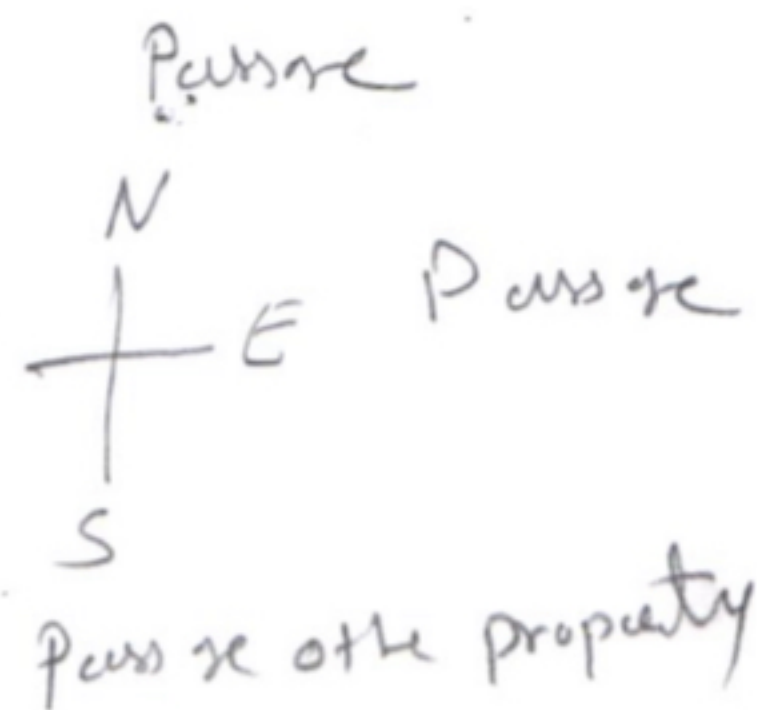 Passage
N
E Passage
S
Passage othe property